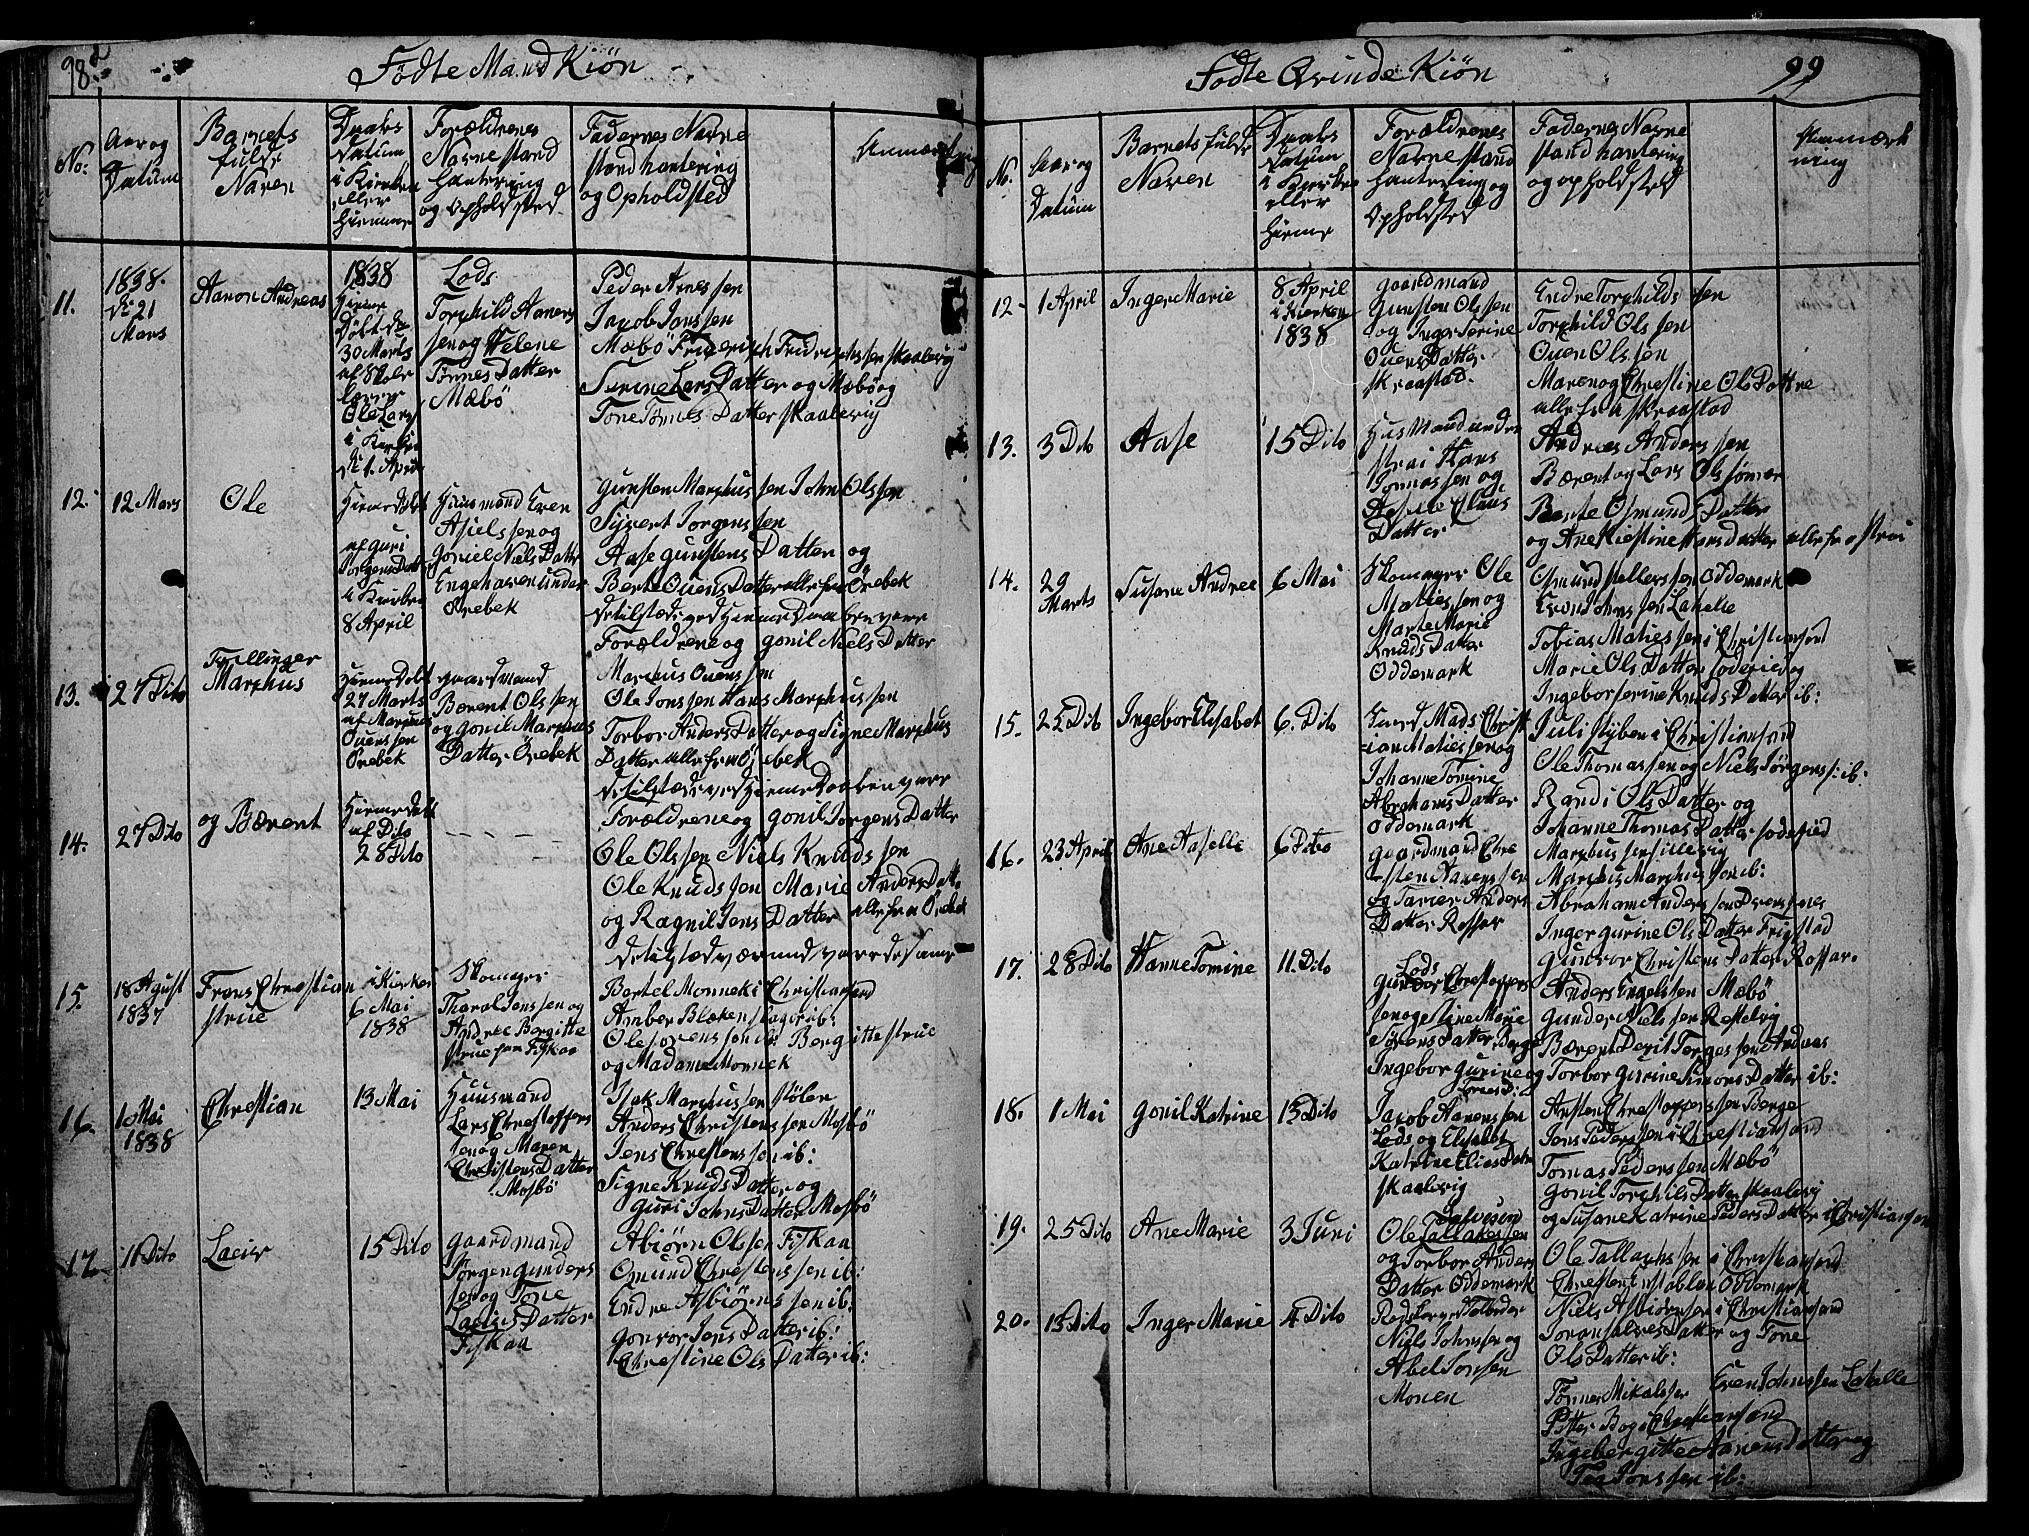 98.
Födte Mand Kiön
No:
Aar og
Datum
Barnets
fulde
Naven
Daabs
Datum
i Kirken
eller
Hiemme
Forældrenes
Navne stand
hantering
og Opholdsted
Fadernes Navne
stand hantering
og Opholdsted
Anmærkning
11.
1838.
21
Mars
Aaron Andreas
1838
Hieme
Döbt
30 Marts
af Skole
lærer
Ole Lars
i Kirken
1. April
Lods
Torchild Aanens
sen og Helene
Tönnes Datter
Mæbö
Peder Arnessen
Jacob Jonssen
Mæbö Friderich Fridrichssen skaalevig
Serine Lars Datter og Mæbö og
Tone Tönnes Datter skaalevig
12.
12 Mars
Ole
Hieme Döbt
af Guri
Jörgens Datter
i Kirken
8 April
Huusmand Even
Axelssen og
Goniel Niels Datter
Engehaven under
Örebek
Gunsten Marchussen John Olssen
Syvert Jorgenssen
Aase Gunstens Datter og
Berte Ouens Datter alle fra Örebek
de tilstæde ved Hieme Daaben vare
Forældrene og Gonil Niels Datter
13.
27 Dito
Tvillinger
Marchus
Hieme Döbt
27 Marts
af Marcus
Ouenssen
Örebek
gaardmand
Bærent Olssen
og Gonil Marchus
Datter Örebek
Marchus Ouenssen
Ole Jonssen Hans Marchussen
Torbor Anders Datter og Signe Marchus
Datter alle fra Örebek
de tilstæde ved Hieme Daaben vare
Forældrene og Gonil Jorgens Datter
14.
27 Dito
og Bærent
Hieme Döbt
af Dito
28 Dito
Ole Olssen Niels Knudssen
Ole Knudssen Marie Anders Datt.
og Ragnil Jens Datter alle fra Örebek
de tilstedværrend vare de samme
15.
18 Agust
1837
Frans Christian
strue
i Kirken
6 Mai
1838
Skomager
Tharal Jenssen og
Andree Bergitte
strue fra Fiskaa
Bertel Monnek i Christiansand
Amber Blækenslager ib:
Ole sorenssen ib: Bergitte strue
og Madame Monnek
16.
1 Mai
1838
Christian
13 Mai
Huusmand
Lars Christoffers
sen og Maren
Christens Datter
Mosbö
Isak Marchussen stölen
Anders Christenssen Mosbö
Jens Christenssen ib:
Signe Knuds Datter og
Guri Johns Datter Mosbö
17
11 Dito
Lacier
15 Dito
gaardmand
Jörgen gunders
sen og Tone
Lacius Datter
Fiskaa
Abiörn Olssen Fiskaa
Omund Christenssen ib:
Endre Asbiörnssen ib:
Gonvor Jens Datter ib:
Christine Ols Datter ib:
Födte Qvinde Kiön
99
No.
Aar og
Datum
Barnets fulde
Naven
Daabs
Datum
i Kirken
eller
Hieme
Forældrenes
Navne stand
hantering og
Opholdsted
Fadernes Navne
stand hantering
og opholdsted
Anmærk
ning
12.
1 April
Inger Marie
8 April
i Kirken
1838
gaardmand
Gunsten Olssen
og Inger Serine
Ouens Datter
skraastad.
Endre Torchildssen
Torchild Olssen
Ouen Olssen
Maren og Christine Ols Dattre
alle fra skraastad
13.
3 Dito
Aase
15 Dito
Husmand under
strai Hans
Tommassen og
Claus
Datter
Andreas Anderssen
Bærent og Lars Olssönner
Berte Osmunds Datter
og Ane Kiestine Hans datter alle fra strai
14.
29
Marts
Susane Andrea
6 Mai
Skomager Ole
Matiessen og
Marte Marie
Knuds Datter
Oddemark
Osmund Oddemark
Even Johnssen Lahelle
Tobias Matiessen i Christiansand
Marie Ols Datter Soderied og
Ingebor serine Knuds Datter ib:
15.
25 Dito
Ingebor Elisabet
6. Dito
Mads Christ
ian Matiessen og
Johanne Tomine
Abrahams Datter
Oddemark
Juli styben i Christiansand
Ole Thomassen og Niels Jörgenss: ib:
Randi Ols Datter og
Johanne Thomas Datter sodesied
16.
23 April
Ane Aaselle
6 Dito
gaardmand Chre
sten Aanenssen
og Tarier Anders
Datter Rossar
Marchussen sillevig
Marcus Marchussen ib:
Abraham Anderssen
Inger Gurine Ols Datter Frigstad
Gunvor Christens Datter Rossar.
17.
28 Dito
Hanne Tomine
11. Dito
Lods
Gunder Christoffers
sen og Stine Marie
Sörens Datter Berge
Anders Engelssen Mæbö
Gunder Nielssen Restelvig
Bærent Dorit Torgessen Andaas
Ingebor Gurine og
Torbor Gurine Simons Datter ib:
18.
1 Mai
Gonil Katrine
13 Dito
Jacob Aanenssen
Lods og Elisabet
Katrine Elias Datter
skaalevig
Arsten Christofferssen Berge
Jens Pederssen i Christiansand
Tomas Pederssen Mæbö
Gonil Torchils Datter skaalevig
og Susane Katrine Peders Datter i Christiansan
19.
25 Dito
Ane Marie
3 Juni
Ole Tallakssen
og Torbor Anders
Datter Oddemark
Ole Tallachssen i Christiansand
Christen Oddemark
Niels Asbiörnsen i Christiansand
Datter og Tone
Ols Datter ib:
20.
13 Dito
Inger Marie
4 Dito
Niels Johnssen og
Abel Jonssen
Monen
Tönnes Mikalssen Even Johnssen Lahelle
Petter Bog i Christiansand
Ingebergitte Aanens datter og
Jonssen ib: